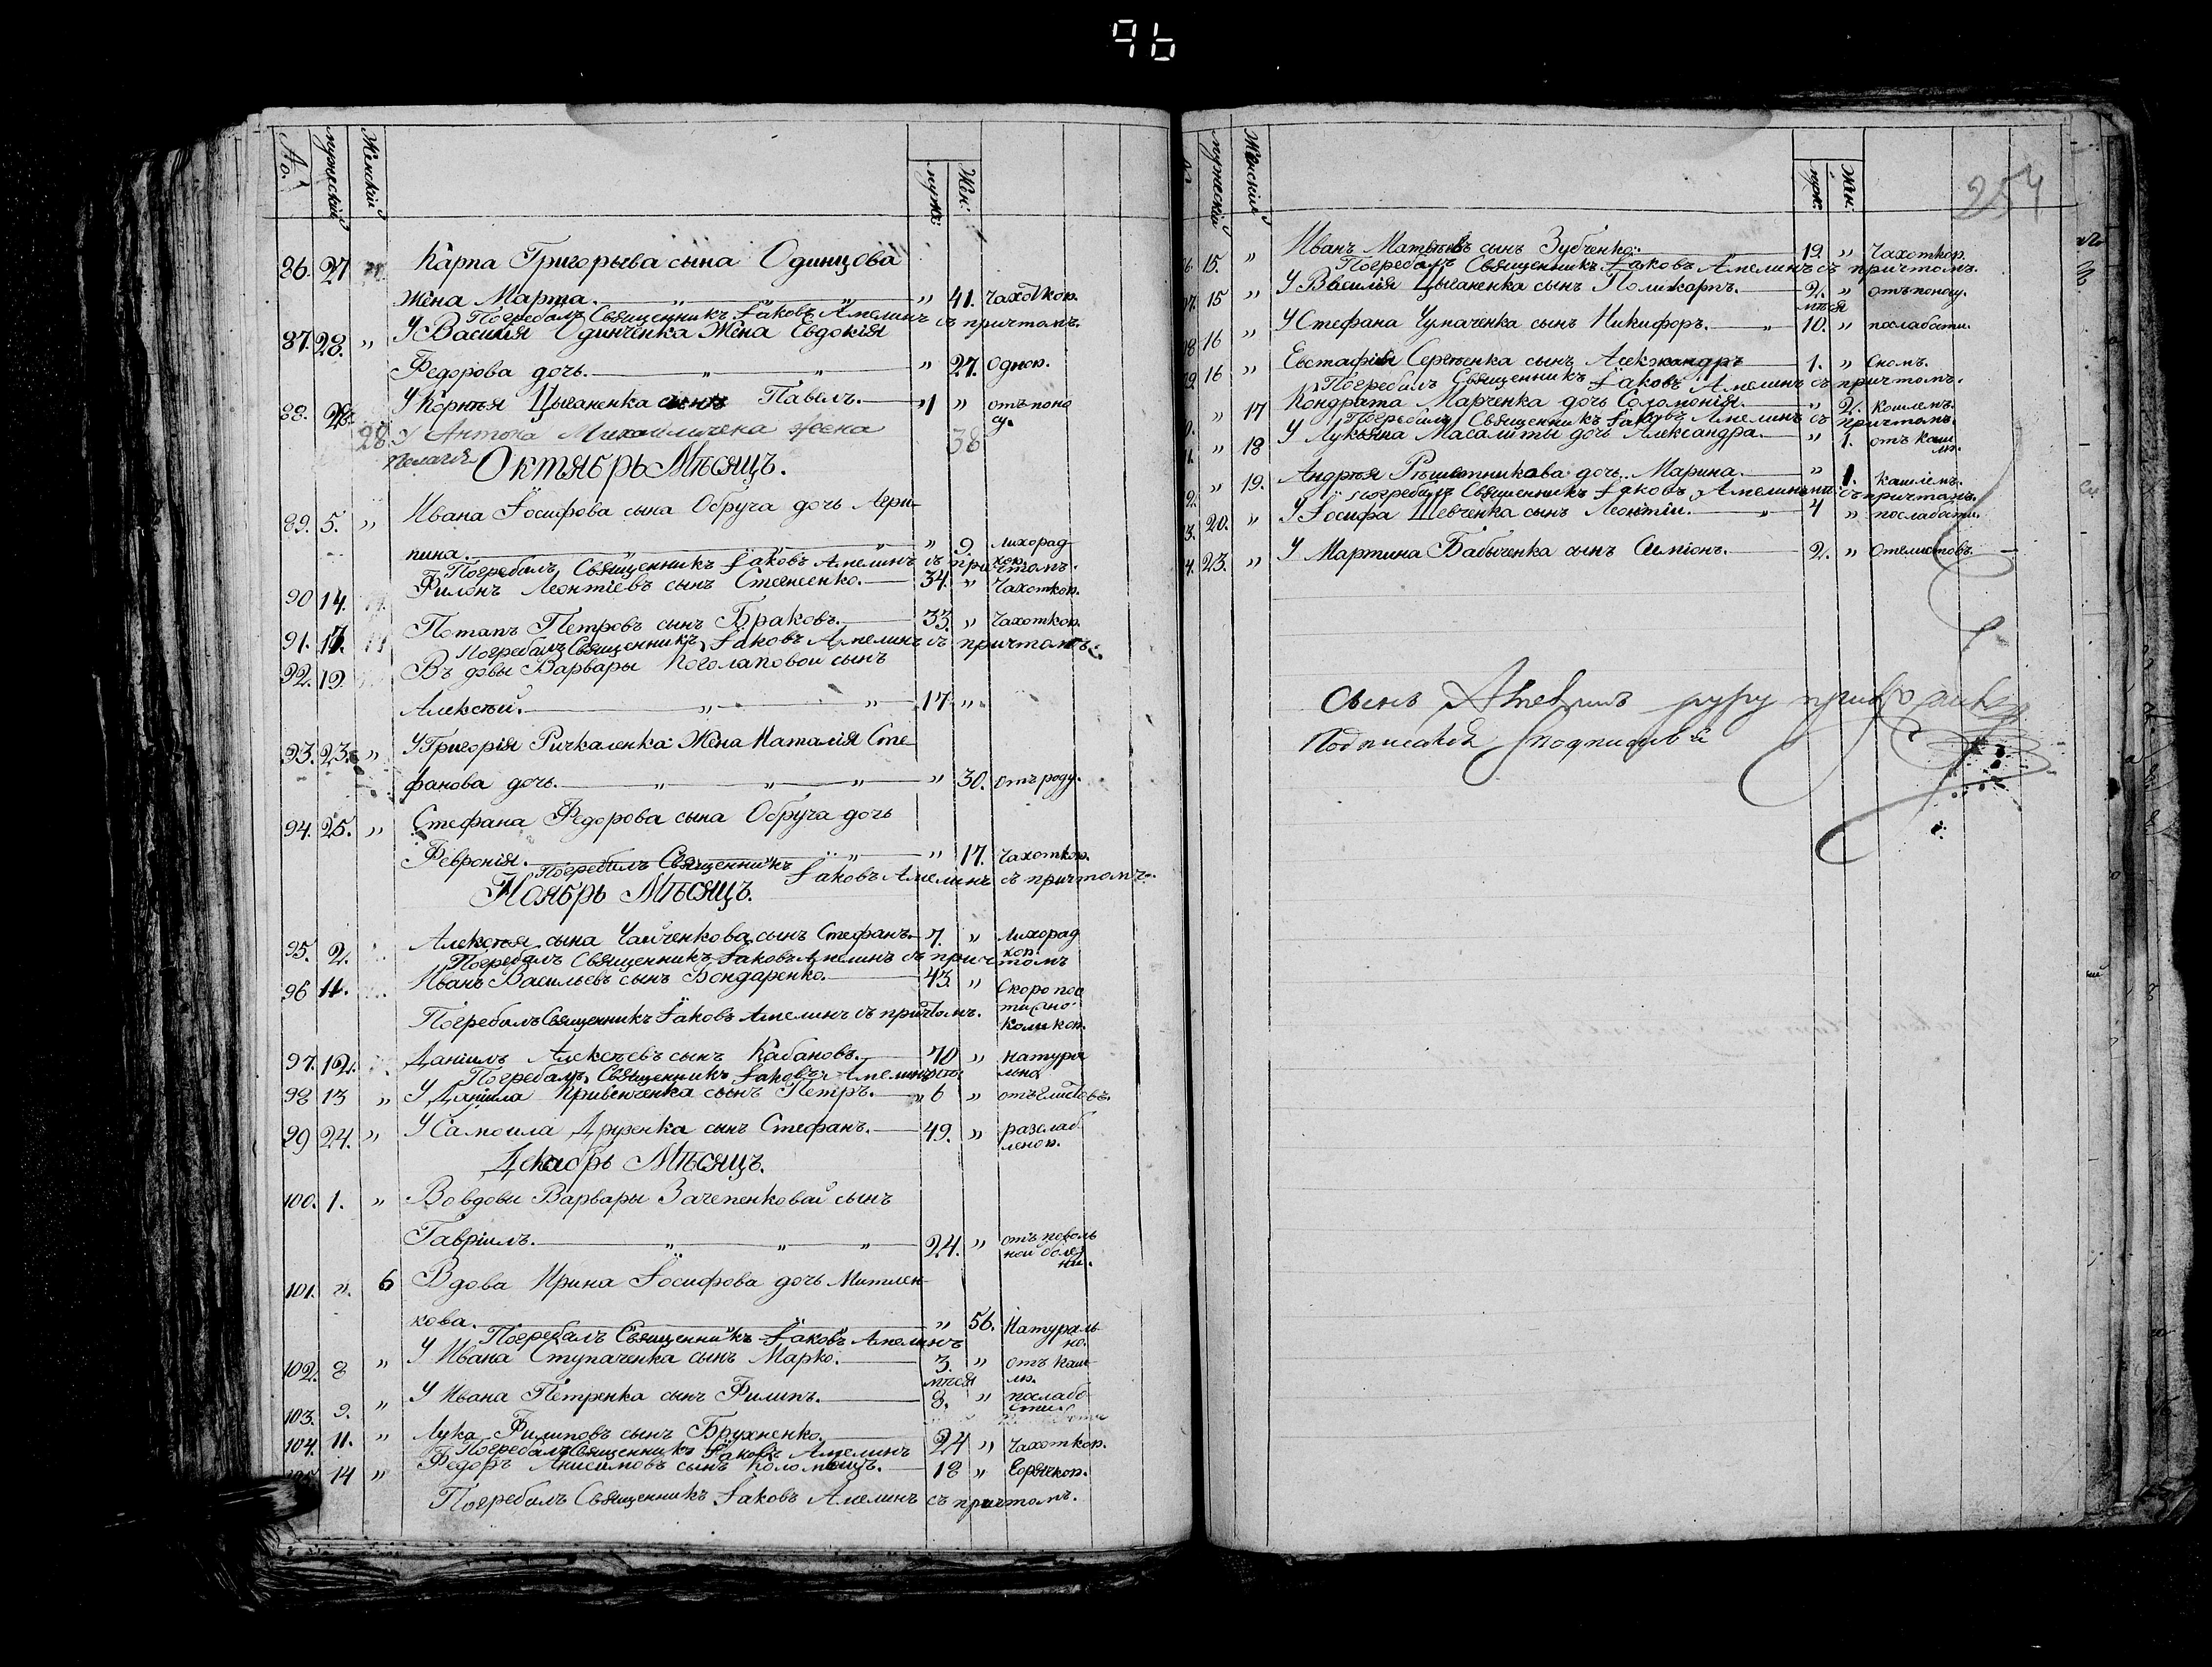 96
№. мужескій Женскій муж: Жен:
86. 27 Карпа Григорьева сына Одинцова
жена Марта. „ „ „ „ 41. Чахоткою.
Погребалъ Священникъ Іаковъ Амелинъ съ причтомъ.
87. 28. „ У Василія Одинченка Жена Евдокія
Федорова дочь. „ „ „ 27. Одною.
88. 28. У Корнѣя Цыганенка сынъ Павелъ. „ 1 „ отъ поно
су.
28. У Антона Михайличека жена 38
Пелагея
Октябрь Мѣсяцъ.
89. 5. „ Ивана Іосифова сына Обруча дочь Агри-
пина. „ „ „ 9. лихорад
кою.
Погребалъ Священникъ Іаковъ Амелинъ съ причтомъ.
90 14. Филонъ Леонтіевъ сынъ 34. „ Чахоткою.
91. 17. Потапъ Петровъ сынъ Браковъ. 33. „ Чахоткою.
Погребалъ Священникъ Іаковъ Амелинъ съ причтомъ.
92. 19. Въ довы Варвары Поголаповой сынъ
Алексѣй. „ „ 17 „
93. 23. „ У Григорія Ричкаленка Жена Наталія Сте-
фанова дочь. „ „ „ „ 30. отъ роду.
94. 25. „ Стефана Федорова сына Обруча дочь
Февронія. „ „ 17. Чахоткою.
Погребалъ Священникъ Іаковъ Амелинъ съ причтомъ.
Ноябрь Мѣсяцъ.
95. 2. Алексѣя сына Чайченкова сынъ Стефанъ. 7. „ Лихорад
кою.
Погребалъ Священникъ Іаковъ Амелинъ съ причтомъ
96 11. Иванъ Васильевъ сынъ Бондаренко. 43. „ Скоропос
тижно
Погребалъ Священникъ Іаковъ Амелинъ съ причтомъ. коликою.
97. 12. Даніилъ Алексѣевъ сынъ Кабановъ. 70 „ натура
льно
Погребалъ Священникъ Іаковъ Амелинъ
98 13 „ У Даніила Кривенченка сынъ Петръ. „ 6 „ отъ глистовъ.
99 24. „ У Самоила Друзенка сынъ Стефанъ. 49. „ разслаб
леною.
Декабрь Мѣсяцъ.
100. 1. „ Вовдовы Варвары Зачепенковай сынъ
Гавріилъ. „ „ „ 24. „ отъ поваль
ной болѣз
ни.
101. „. 6 Вдова Ирина Іосифова дочь Митлен-
кова. „ „ 56. Натураль
но.
Погребалъ Священникъ Іаковъ Амелинъ
102. 8 „ У Ивана Ступаченка сынъ Марко. 3. „ отъ каш
мѣся лю.
103. 9. „ У Ивана Петренка сынъ Филипъ. 8. „ послабо
сти.
104. 11. „ Лука Филиповъ сынъ Брухненко. 24 „ Чахоткою.
Погребалъ Священникъ Іаковъ Амелинъ
105 14 „ Федоръ Анисимовъ сынъ Коломѣецъ. 18 „ Горячкою.
Погребалъ Священникъ Іаковъ Амелинъ съ причтомъ.
мужескій Женскій муж: Жен: 254
6. 15. „ Иванъ Матвѣевъ сынъ Зубченко. 19. „ Чахоткою.
Погребалъ Священникъ Іаковъ Амелинъ съ причтомъ.
07. 15 „ У Василія Цыганенка сынъ Поликарпъ. 2. „ отъ поносу.
мѣся
08 16 „ У Стефана Чумаченка сынъ Никифоръ. „ 10. „ послабости.
09. 16 „ Евстафія Сергѣенка сынъ Александръ 1. „ Сномъ.
Погребалъ Священникъ Іаковъ Амелинъ съ причтомъ.
0. „ 17 Кондрата Марченка дочь Соломонія. „ 2. Кашлемъ.
Погребалъ Священникъ Іаковъ Амелинъ съ причтомъ.
1. „ 18 У Лукьяна Масалиты дочь Александра. „ 1. отъ каш
лю.
2. „ 19. Андрѣя Рѣшетникова дочь Марина. „ 1. кашлемъ.
Погребалъ Священникъ Іаковъ Амелинъ съ причтомъ.
3. 20. „ У Іосифа Шевченка сынъ Леонтій. „ 4 „ послабости.
4. 23. „ У Мартина Бабыченка сынъ Симіонъ. 2. „ отглистовъ.